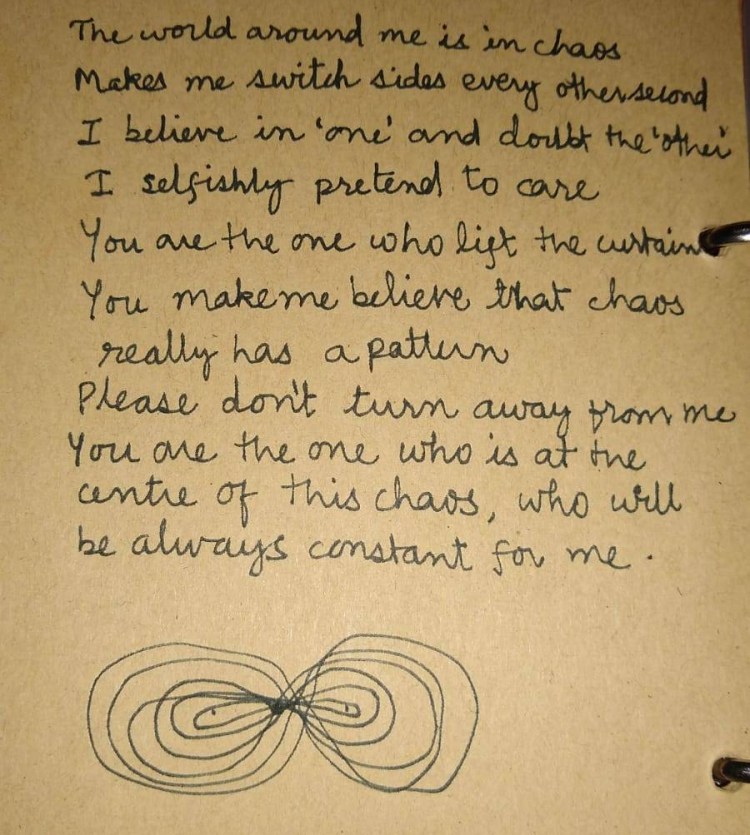 The world around me is in chaos
Makes me switch sides every other second
I believe in 'one' and doubt the 'other'
I selfishly pretend to care
You are the one who lift the curtain
You make me believe that chaos
really has a pattern
Please don't turn away from me
You are the one who is at the
centre of this chaos, who will
be always constant for me.